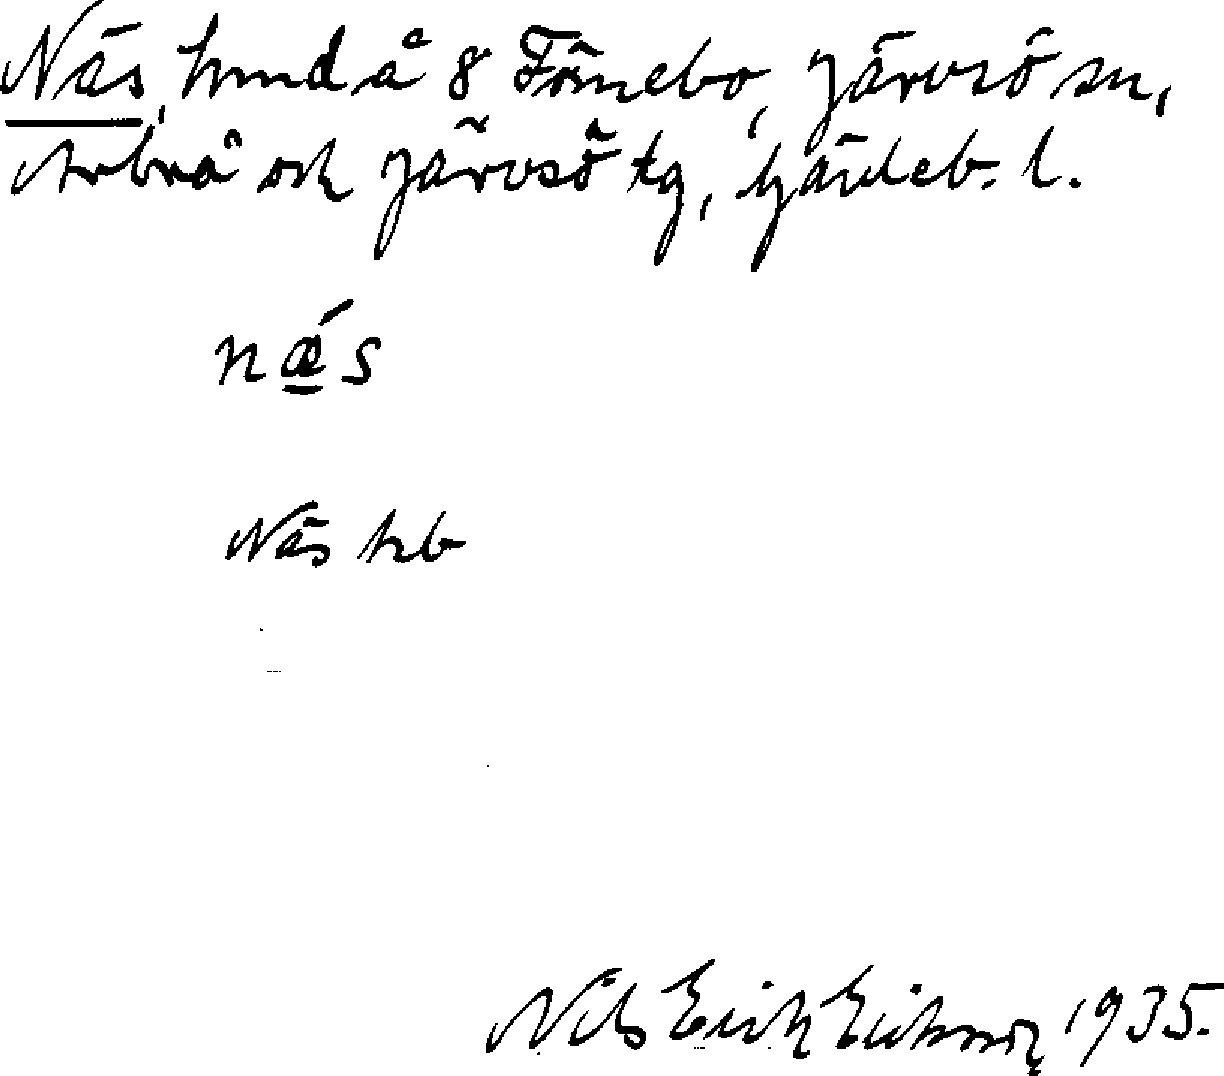 Näs, hmd å 8 Förnebo, Järvsö sn,
Arbrå och Järvsö tg, Gävleb. l.
nǽ̲s
Näs kb
Nils Erik Eriksson 1935.